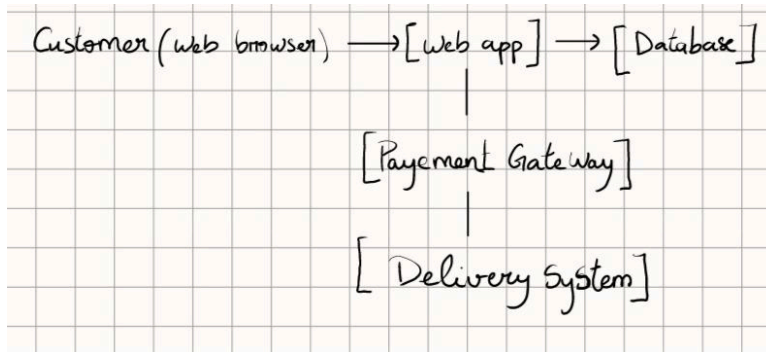 Customer (web browser) → [web app] → [Database]
[Payement Gateway]
[Delivery System]